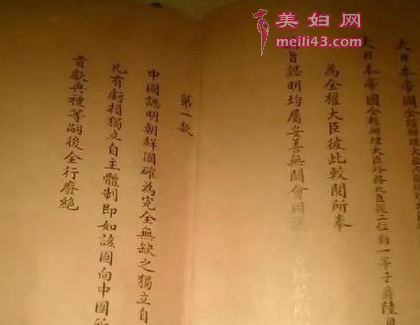 美妇网
meili43.com
大日本帝國全權辦理大臣
大日本帝國全權辦理大臣外務大臣從二位勳一等子爵陸
為全權大臣彼此較閱所奉
旨認明均屬妥善無闕會同議
第一款
中國認明朝鮮國確為完全無缺之獨立自
凡有虧損獨立自主體制即如該國向中國所
貢獻典禮等嗣後全行廢絕